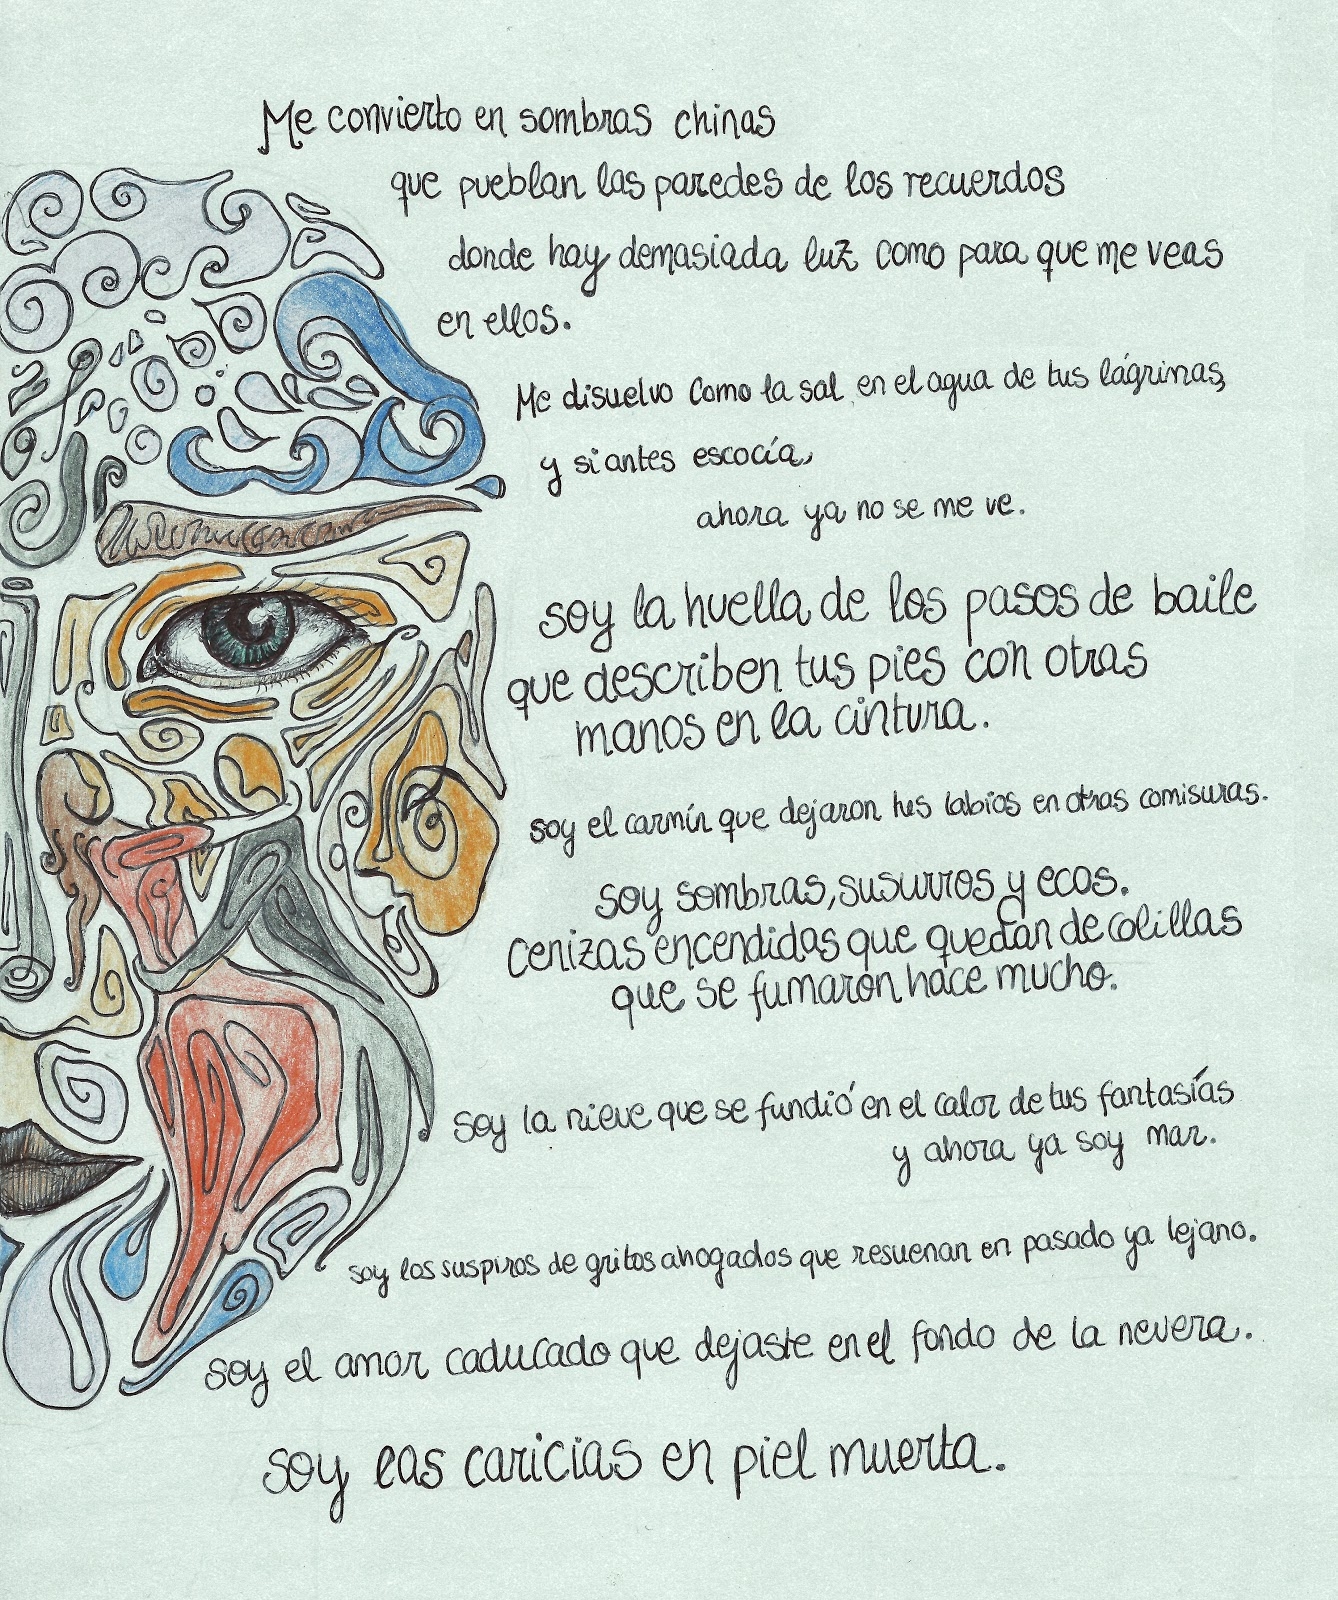 Me convierto en sombras chinas
que pueblan las paredes de los recuerdos
donde hay demasiada luz como para que me veas
en ellos.
Me disuelvo como la sal en el agua de tus lágrimas,
y si antes escocía,
ahora ya no se me ve.
soy la huella de los pasos de baile
que describen tus pies con otras
manos en la cintura.
soy el carmín que dejaron tus labios en otras comisuras.
soy sombras, susurros y ecos.
cenizas encendidas que quedan de colillas
que se fumaron hace mucho.
soy la nieve que se fundió en el calor de tus fantasías
y ahora ya soy mar.
soy los suspiros de gritos ahogados que resuenan en pasado ya lejano.
soy el amor caducado que dejaste en el fondo de la nevera.
soy las caricias en piel muerta.